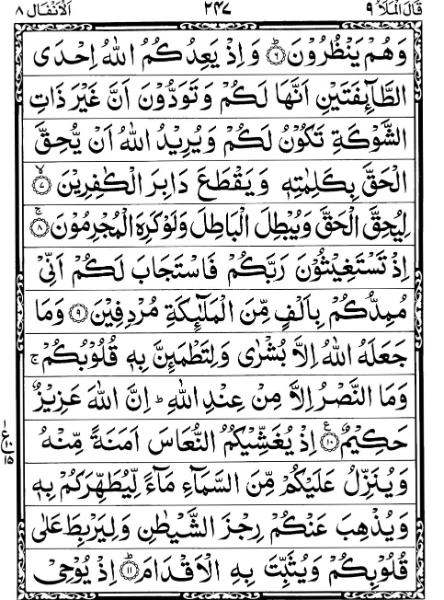 قَالَ الۡمَلَاُ ۹ ۲۴۷ اَلۡاَنۡفَال ۸
وَهُمۡ يَنۡظُرُوۡنَ ؕ‏﴿۶﴾ وَاِذۡ يَعِدُكُمُ اللّٰهُ اِحۡدَى
الطَّآئِفَتَيۡنِ اَنَّهَا لَكُمۡ وَتَوَدُّوۡنَ اَنَّ غَيۡرَ ذَاتِ
الشَّوۡكَةِ تَكُوۡنُ لَكُمۡ وَيُرِيۡدُ اللّٰهُ اَنۡ يُّحِقَّ
الۡحَقَّ بِكَلِمٰتِهٖ وَيَقۡطَعَ دَابِرَ الۡكٰفِرِيۡنَ ۙ‏﴿۷﴾
لِيُحِقَّ الۡحَقَّ وَيُبۡطِلَ الۡبَاطِلَ وَلَوۡ كَرِهَ الۡمُجۡرِمُوۡنَ ۚ‏﴿۸﴾
اِذۡ تَسۡتَغِيۡثُوۡنَ رَبَّكُمۡ فَاسۡتَجَابَ لَكُمۡ اَنِّىۡ
مُمِدُّكُمۡ بِاَلۡفٍ مِّنَ الۡمَلٰٓئِكَةِ مُرۡدِفِيۡنَ‏﴿۹﴾ وَمَا
جَعَلَهُ اللّٰهُ اِلَّا بُشۡرٰى وَلِتَطۡمَئِنَّ بِهٖ قُلُوۡبُكُمۡ ۚ
وَمَا النَّصۡرُ اِلَّا مِنۡ عِنۡدِ اللّٰهِ ؕ اِنَّ اللّٰهَ عَزِيۡزٌ
حَكِيۡمٌ ع‏﴿۱۰﴾ اِذۡ يُغَشِّيۡكُمُ النُّعَاسَ اَمَنَةً مِّنۡهُ
وَيُنَزِّلُ عَلَيۡكُمۡ مِّنَ السَّمَآءِ مَآءً لِّيُطَهِّرَكُمۡ بِهٖ
وَيُذۡهِبَ عَنۡكُمۡ رِجۡزَ الشَّيۡطٰنِ وَلِيَرۡبِطَ عَلٰى
قُلُوۡبِكُمۡ وَيُثَبِّتَ بِهِ الۡاَقۡدَامَ ؕ‏﴿۱۱﴾ اِذۡ يُوۡحِىۡ